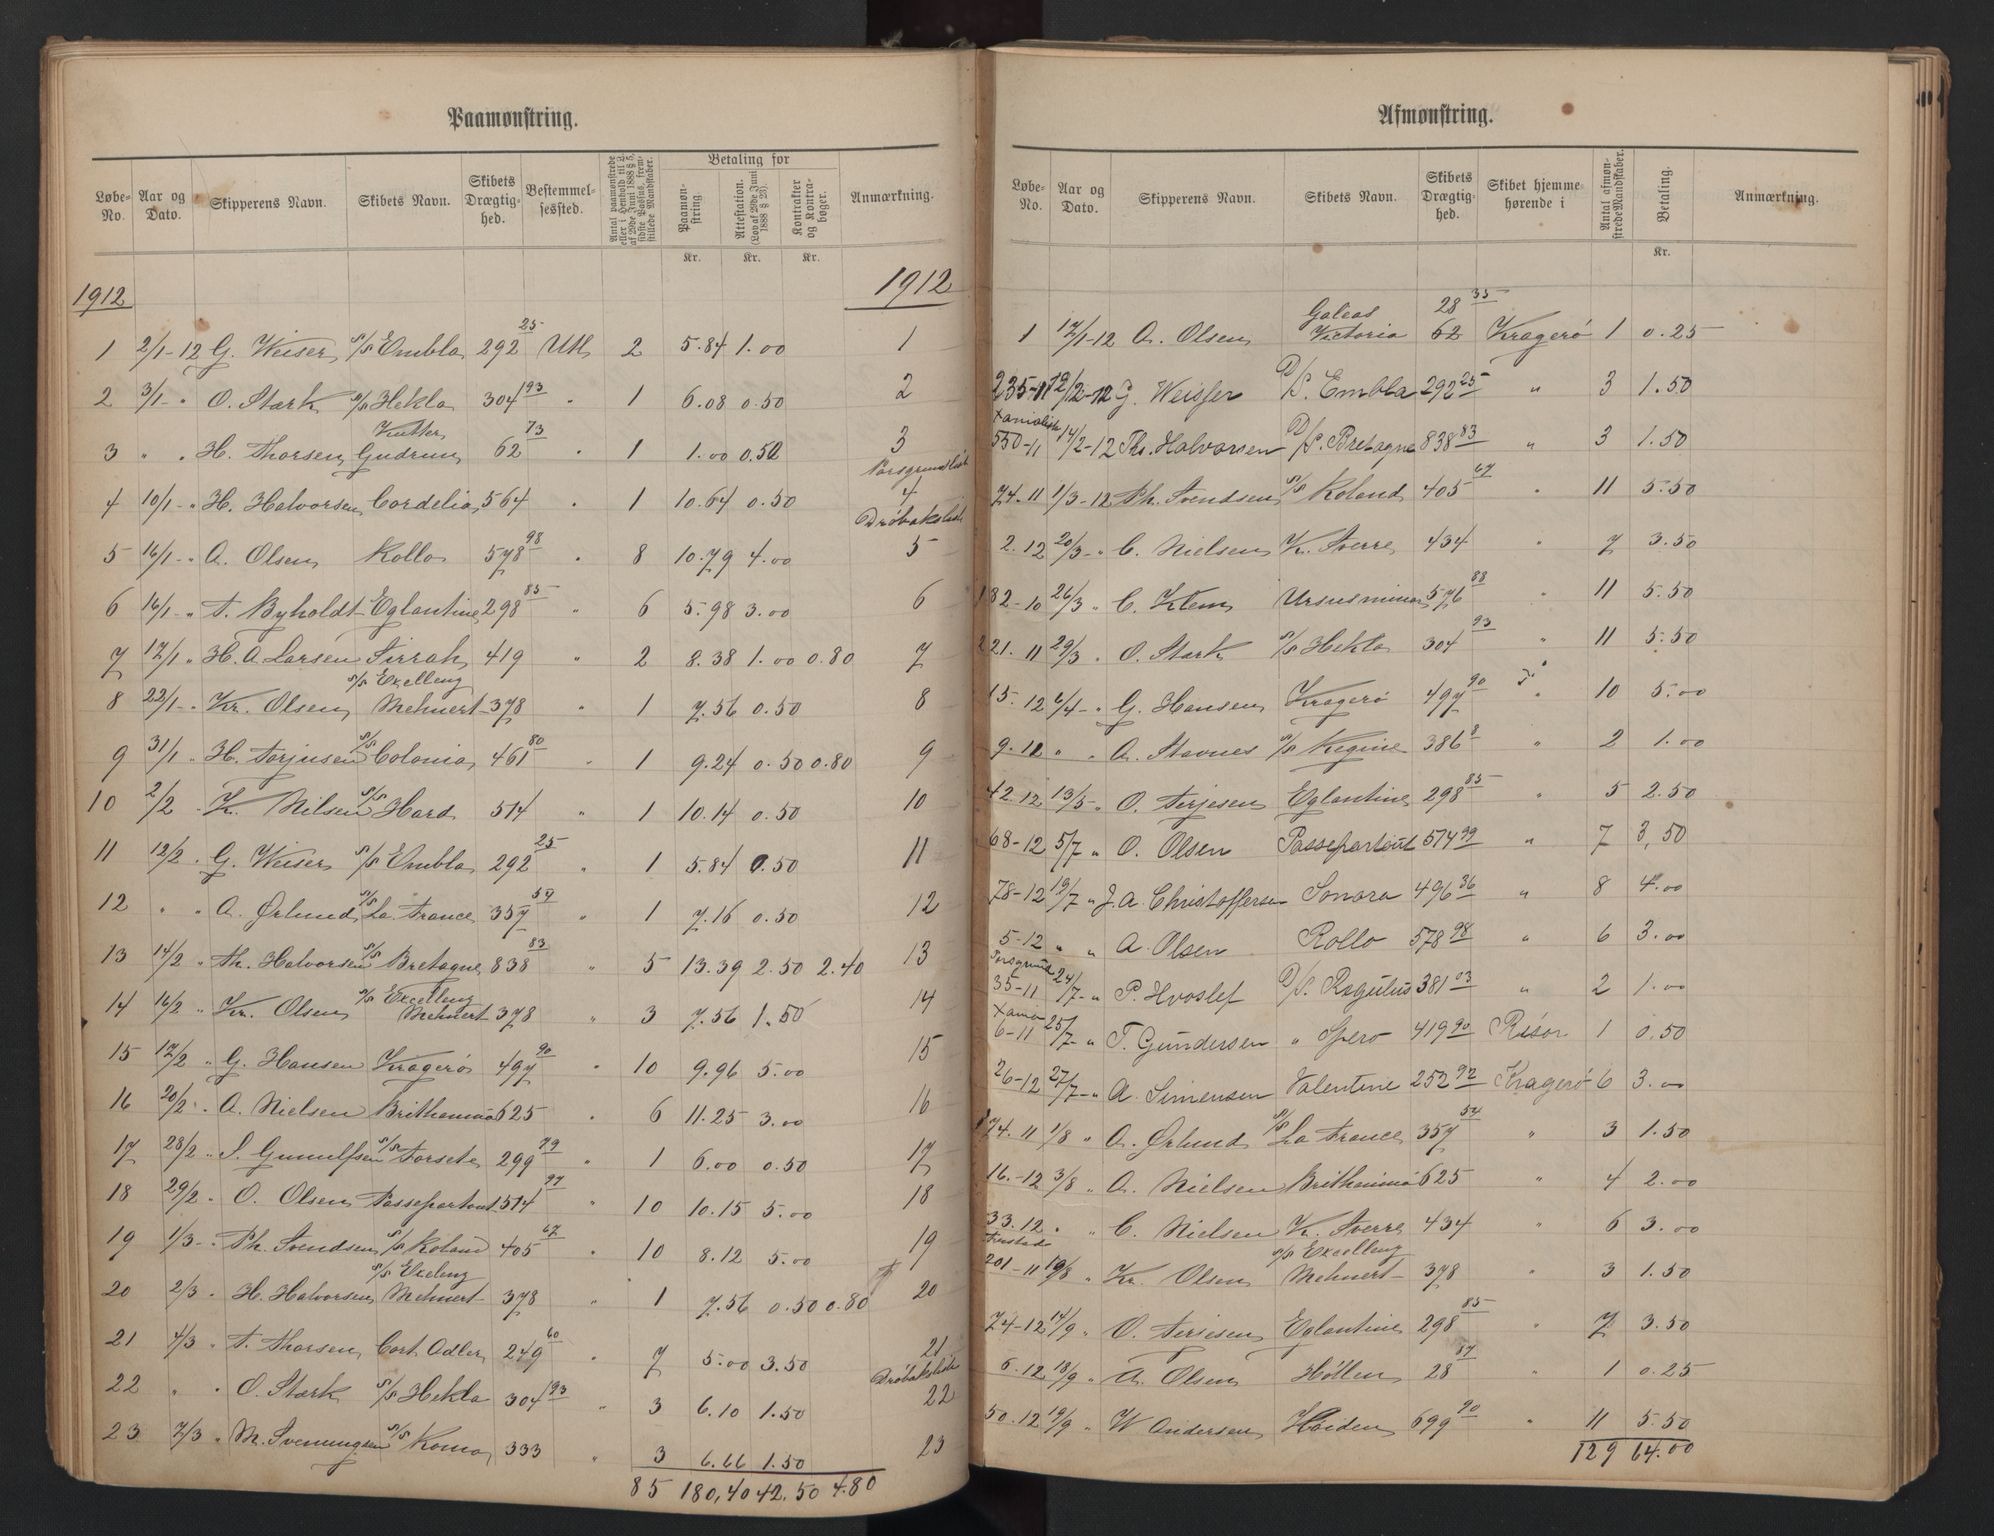 Paamønstring.
Løbe-No. Aar og Dato. Skipperens Navn. Skibets Navn. Skibets Drægtighed. Bestemmelsessted. Antal paamønstrede eller i Henhold til L. af 29de Juni 1888 § 5, sidste Passus, fremstillede Mandskaber. Betaling for Paamønstring. Attestation. (Lov af 29de Juni 1888 § 23). Kontrakter og Kontrabøger. Anmærkning.
Kr. Kr. Kr.
1912 1912
1 2/1-12 G. Weiser S/S Embla 292 25 Udl 2 5.84 1.00 1
2 3/1 - " O. Stærk S/S Hekla 304 93 " 1 6.08 0.50 2
3 " " H. Thorsen Kutter Gudrun 62 73 " 1 1.00 0.50 3 Porsgrundlisk
4 10/1 - " H. Halvorsen Cordelia 564 " 1 10.64 0.50 4 Drøbakslisk
5 16/1 - " A. Olsen Rollo 578 98 " 8 10.79 4.00 5
6 16/1 - " T. Byholdt Eglantine 298 85 " 6 5.98 3.00 6
7 17/1 " H. A Larsen Sirrah 419 " 2 8.38 1.00 0.80 7
8 22/1 - " Kr. Olsen S/S Exelleng Mehnert 378 " 1 7.56 0.50 8
9 31/1 " H. Torjusen S/S Colonia 461 80 " 1 9.24 0.50 0.80 9
10 2/2 - K. Nilsen S/S Hard 514 " 1 10.14 0.50 10
11 12/2 . G. Weiser S/S Embla 292 25 " 1 5.84 0.50 11
12 " " A. Ørlund S/S La France 357 54 " 1 7.16 0.50 12
13 14/2 " Th. Halvorsen S/S Bretagne 838 83 " 5 13.39 2.50 2.40 13
14 16/2 " Kr. Olsen S/S Excelleng Mehnert 378 " 3 7.56 1.50 14
15 17/2 " G. Hansen Kragerø 497 90 " 10 9.96 5.00 15
16 20/2 . A. Nielsen Brithannia 625 " 6 11.25 3.00 16
17 28/2 " S. Gunulfsen S/S Forsete 299 79 " 1 6.00 0.50 17
18 29/2 " O. Olsen Passepartout 514 " 10 10.15 5.00 18
19 1/3 - Ph. Svendsen S/S Roland 405 67 " 10 8.12 5.00 19
20 2/3 " H. Halvorsen S/S Exeleng Mehnert 378 " 1 7.56 0.50 0.80 20
21 4/3 " T. Thorsen Cort Adler 249 60 " 7 5.00 3.50 21 Drøbakslisk
22 " " O. Stærk S/S Hekla 304 93 " 3 6.10 1.50 22
23 7/3 " M. Sveningsen S/S Roma 333 " 3 6.66 1.50 23
85 180,40 42.50 4.80
Afmønstring.
Løbe-No. Aar og Dato. Skipperens Navn. Skibets Navn. Skibets Drægtighed. Skibet hjemmehørende i Antal afmønstrede Mandskaber. Betaling. Anmærkning.
Kr.
1 17/1-12 A. Olsen Galeas Victoria 28 35 62 Kragerø 1 0.25
235-11 12/2-12 G. Weisser D/S. Embla 292 25 " 3 1.50
550-11 14/2-12 Th. Halvorsen D/S. Bretagne 838 83 " 3 1.50
74-11 1/3-12 Ph. Svendsen S/S Roland 405 67 " 11 5.50
2.12 20/3 - " C. Nielsen K. Sverre 434 " 7 3.50
182-10 26/3 " C. Klem Ursusminor 576 88 " 11 5.50
221.11 29/3 " O. Stærk S/S Hekla 304 93 " 11 5.50
15.12 6/4 - " G. Hansen Kragerø 497 90 " 10 5.00
9.12 " " A. Stavnes S/S Regine 386 8 " 2 1.00
42.12 13/5 - " O. Terjesen Eglantine 298 85 " 5 2.50
68-12 5/7 " O. Olsen Passepartout 514 99 " 7 3,50
78-12 19/7 " J. A. Christoffersen Sonora 496 36 " 8 4.00
5-12 " " A. Olsen Rollo 578 98 " 6 3.00
Porsgrund 35-11 24/7 - " P. Hvoslef D/S. Regulus 381 03 " 2 1.00
6-11 25/7 - " T. Gundersen " Spero 419 90 Risør 1 0.50
26-12 27/7 - " A. Simensen Valentine 252 92 Kragerø 6 3.00
74.11 1/8 " A. Ørlund S/S La France 357 54 " 3 1.50
16.-12 3/8 " A. Nielsen Brithannia 625 " 4 2.00
33.12. " C. Nielsen K. Sverre 434 " 6 3.00
201-11 10/8 " Kr. Olsen S/S Excelleng Mehnert 378 " 3 1.50
74-12 14/9 " O. Terjesen Eglantine 298 85 " 7 3.50
6.12 18/9 " A. Olsen Høllen 28 87 " 1 0.25
50.12 19/9 " W Andersen Heiden 699 90 " 11 5.50
129 64.00